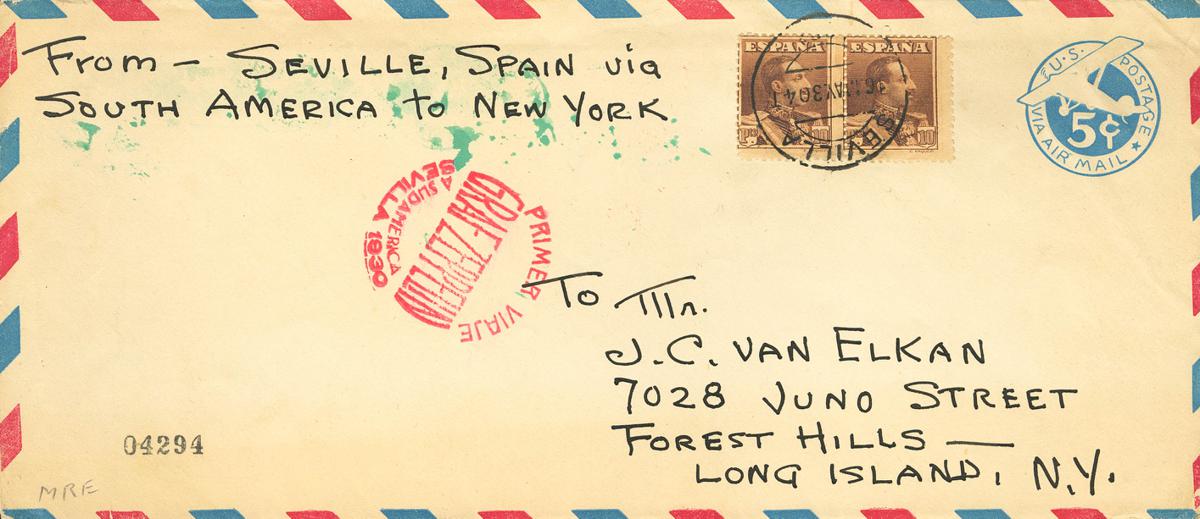 From - SEVILLE, SPAIN via
SOUTH AMERICA to NEW YORK
ESPAÑA
10
ESPAÑA
10
SEVILLA
U.S. POSTAGE
5¢
VIA AIR MAIL
PRIMER VIAJE
GRAF ZEPPELIN
SEVILLA
A SUDAMERICA
SEVILLA 1930
To Mr.
J.C. VAN ELKAN
7028 JUNO STREET
FOREST HILLS —
LONG ISLAND, N.Y.
04294
MRE